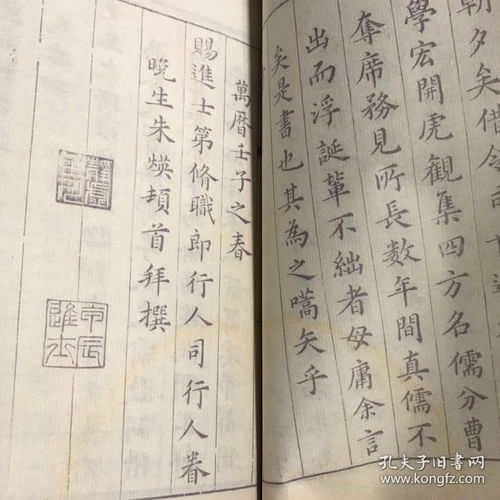 朝夕矣借令
學宏開虎觀集四方名儒分曹
奪席務見所長数年間真儒不
出而浮誕輩不絀者毋庸余言
矣是書也其為之嚆矢乎
萬曆壬子之春
賜進士第脩職郎行人司行人眷
晚生朱煐頓首拜撰
甲辰進士
孔夫子旧书网
www.kongfz.com